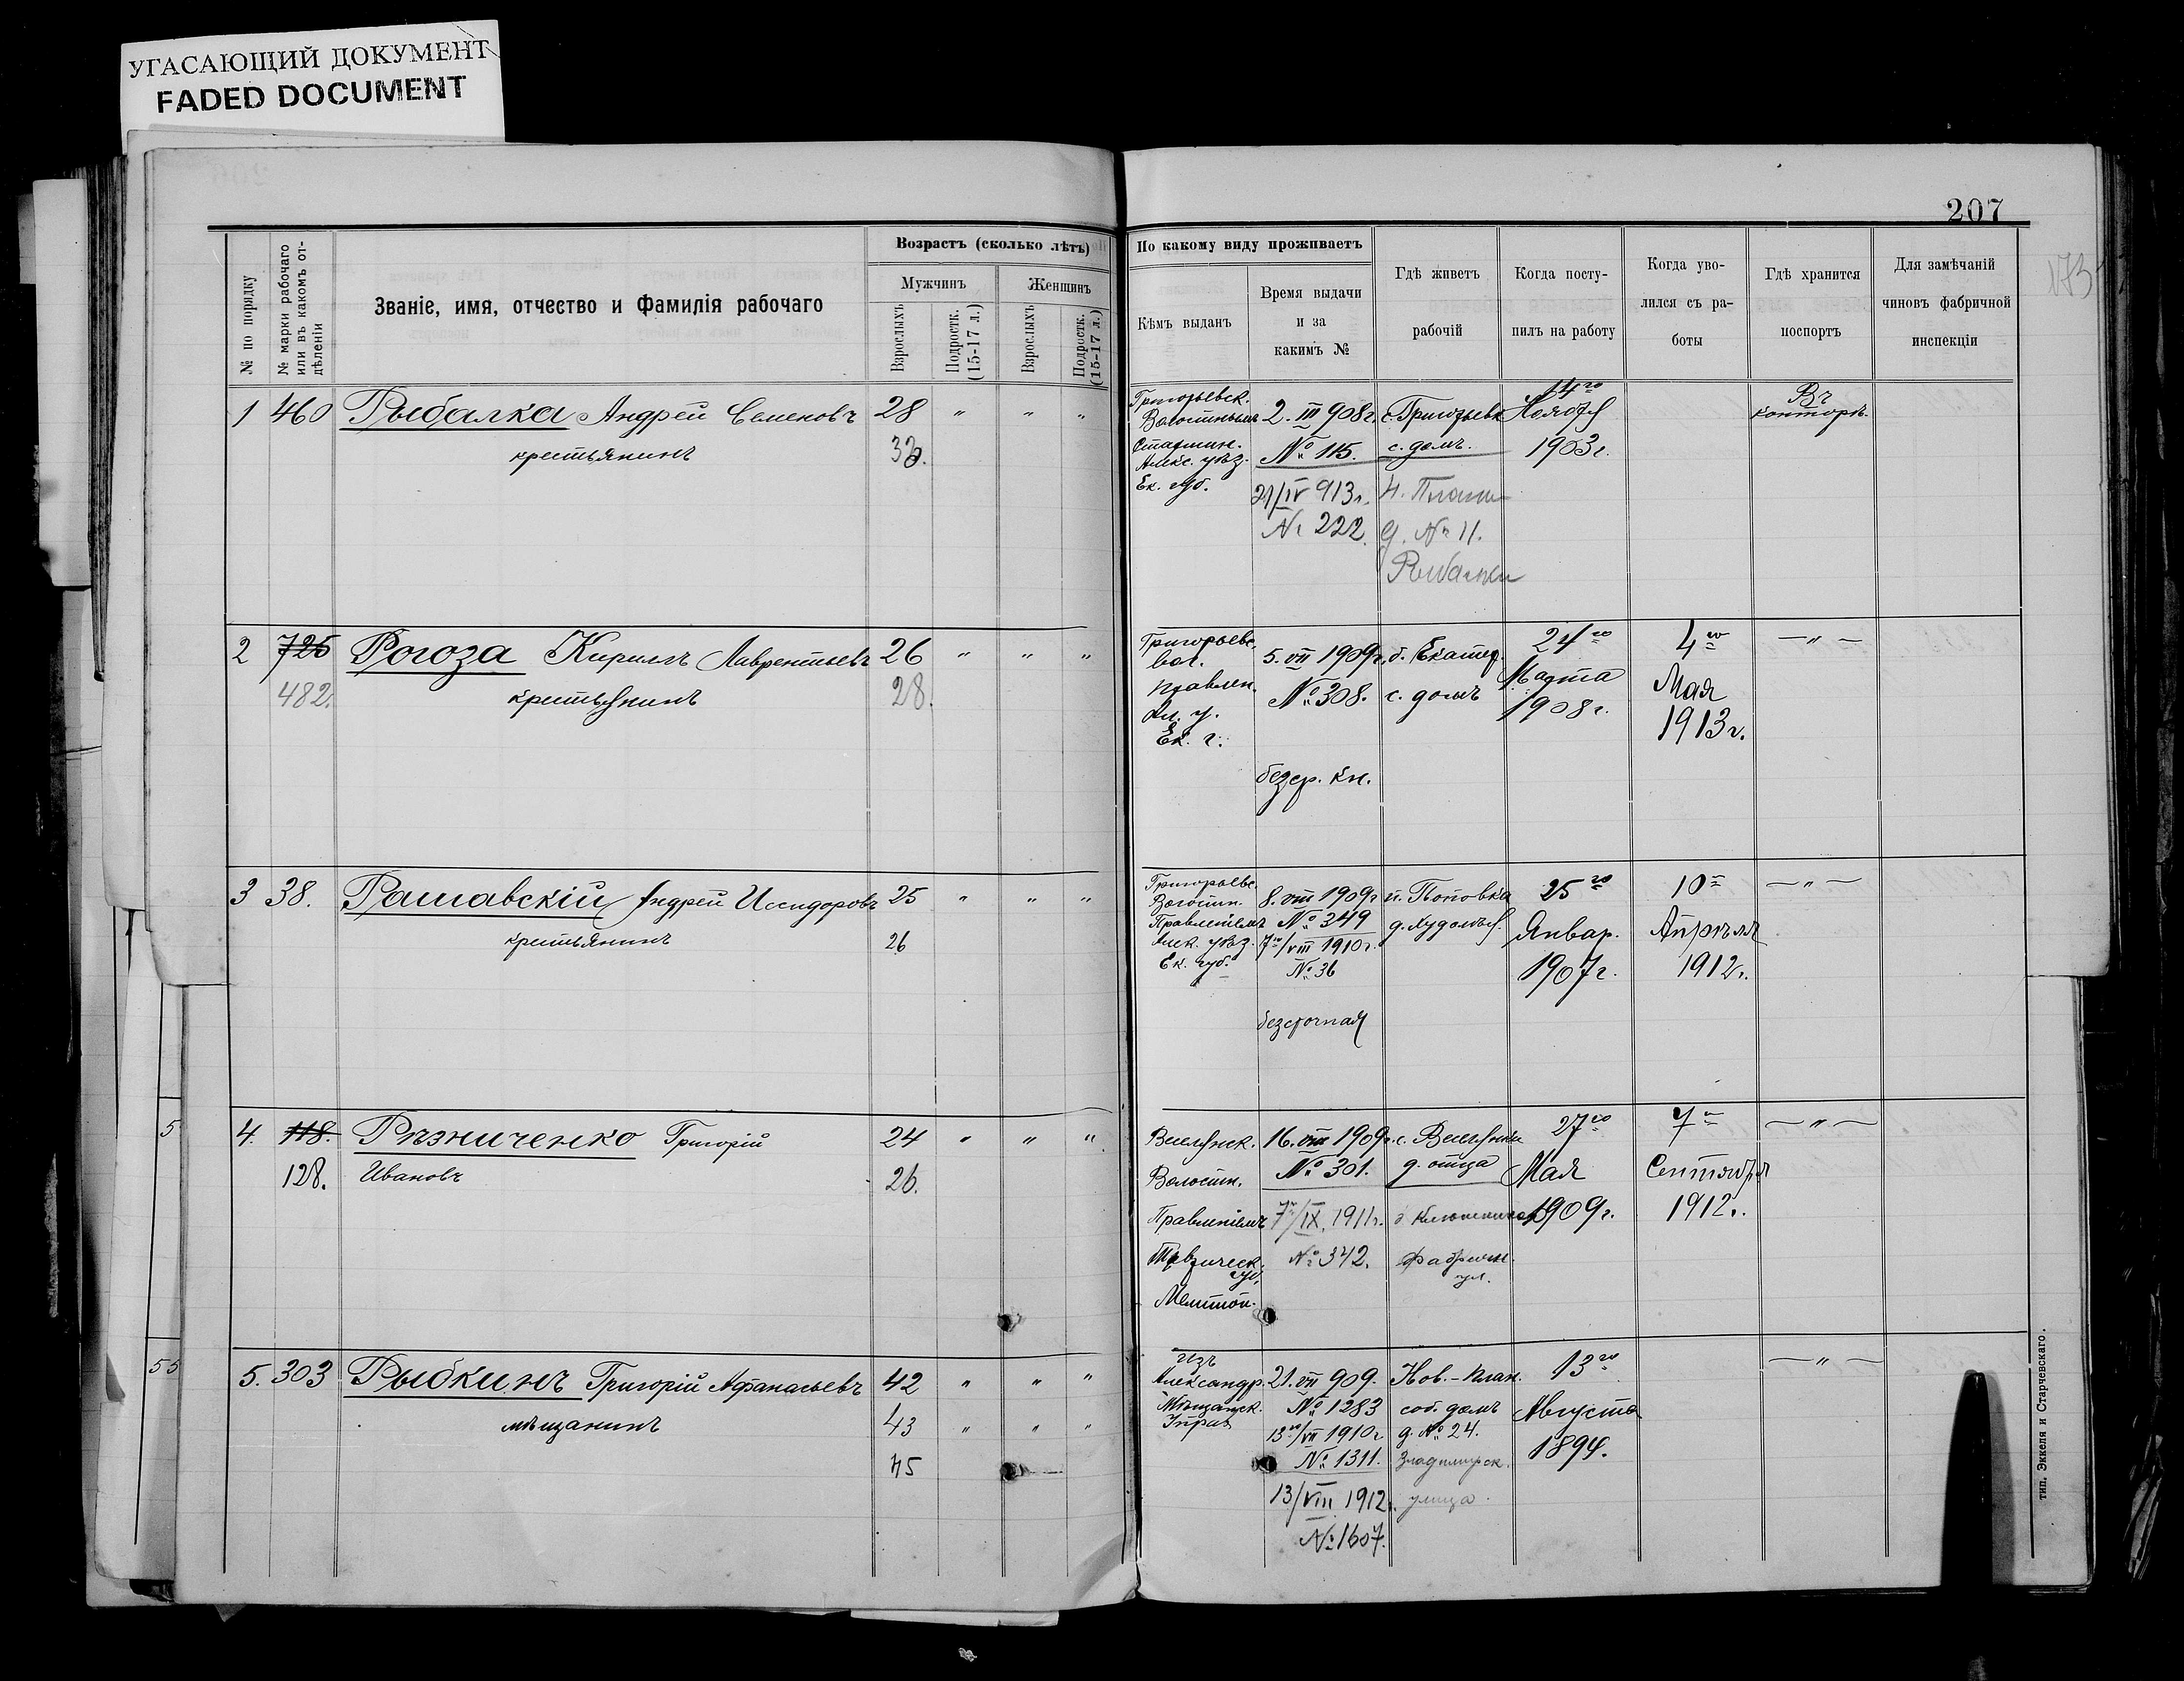 УГАСАЮЩИЙ ДОКУМЕНТ
FADED DOCUMENT
207
173
№ по порядку
№ марки рабочаго или въ какомъ отдѣленіи
Званіе, имя, отчество и фамилія рабочаго
Возрастъ (сколько лѣтъ)
Мужчинъ
Женщинъ
Взрослыхъ
Подростк. (15-17 л.)
Взрослыхъ
Подростк. (15-17 л.)
По какому виду проживаетъ
Кѣмъ выданъ
Время выдачи
и за
какимъ №
Гдѣ живетъ
рабочій
Когда посту-
пилъ на работу
Когда уво-
лился съ ра-
боты
Гдѣ хранится
поспортъ
Для замѣчаній
чиновъ фабричной
инспекціи
1 460 Рыбалка Андрей Семеновъ 28 " " "
крестьянинъ 33.
Григорьевск.
Волостнымъ
Старшин.
Алекс. уѣз.
Ек. губ.
2. III 908 г.
№ 115.
21/IV 913 г.
№ 222.
с. Григорьевк
с. домъ.
Н. План
д. № 11.
Рыбалки
14го
Ноября
1903 г.
Въ
конторѣ.
2 725 Рогоза Кирилъ Лаврентьевъ 26 " " "
482. крестьянинъ 28.
Григорьевс.
вол.
правлен.
Ал. у.
Ек. г.
5. VII 1909 г.
№ 308.
безср. кн.
б. Екатер.
с. домъ
24го
Марта
1908 г.
4го
Мая
1913 г.
— " —
3 38. Рашавскій Андрей Исидоровъ 25 " " "
крестьянинъ 26
Григорьевс.
Волостн.
Правленіемъ
Алек. уѣз.
Ек. губ.
8. VIII 1909 г
№ 349
7го/VIII 1910 г.
№ 36
безсрочная
п. Поповка
25го
Январ.
1907 г.
10го
Апрѣля
1912 г.
— " —
4. 118. Рѣзниченко Григорій 24 " " "
128. Ивановъ 26.
Волостн.
Правленіемъ
Таврическ.
губ.
Мелитоп.
16. VIII 1909 г.
№ 301.
7го/IX 1911 г.
№ 342.
д. отца
фабричн.
ул.
27го
Мая
1909 г.
7го
Сентября
1912 г.
— " —
5. 303 Рыбкинъ Григорій Афанасьевъ 42 " " "
мѣщанинъ 43 " " "
45
изъ
Александр.
Мѣщанск.
Управ
21. VII 909.
№ 1283
13го/VII 1910 г
№ 1311.
13/VIII 1912 г.
№ 1607.
Нов.-план.
соб. домъ
д. № 24.
Владимирск.
улица.
13го
Августа
1894.
— " —
5
55
тип. Эккеля и Старчевскаго.